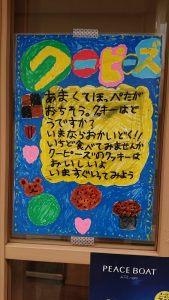 クーピーズ
あまくてほっぺたが
おちそう。クッキーはど
うですか?
いまならおかいどく!!
いちど食べてみませんか
クーピーズのクッキーは
おいしいよ
いますぐいってみよう
PEACE BOAT